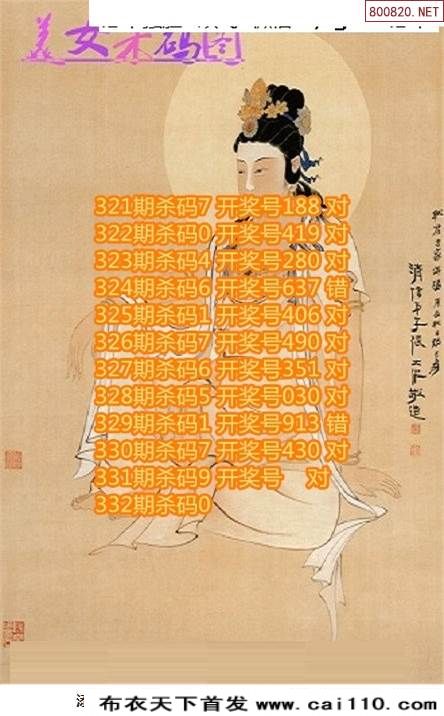 800820.NET
美女杀码图
321期杀码7 开奖号188 对
322期杀码0 开奖号419 对
323期杀码4 开奖号280 对
324期杀码6 开奖号637 错
325期杀码1 开奖号406 对
326期杀码7 开奖号490 对
327期杀码6 开奖号351 对
328期杀码5 开奖号030 对
329期杀码1 开奖号913 错
330期杀码7 开奖号430 对
331期杀码9 开奖号 对
332期杀码0
布衣天下首发 www.cai110.com